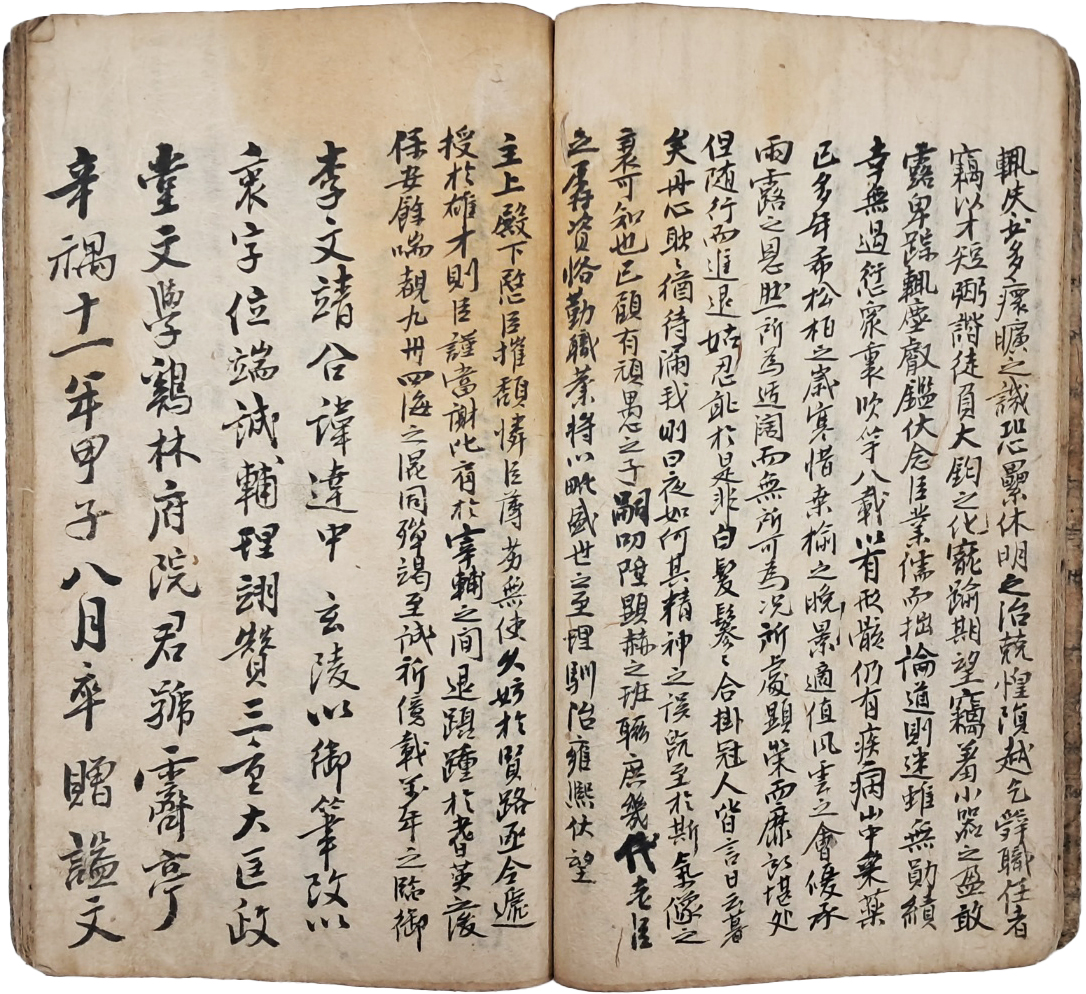 輒失於多瘝曠之識恐累休明之治兢惶隕越乞辭職任者
竊以才短弼諧徒負大鈞之化寵踰期望竊羞小器之盈敢
露卑蹤輒塵叡鑑伏念臣業儒而拙論道則迷雖無勛績
幸無過愆眾裏吹竽八載以有形骸仍有疾病山中采藥
已多年希松柏之歲寒惜桑榆之晚景適值風雲之會優承
雨露之恩然所為迂闊而無所可為況所處顯榮而靡所堪处
但隨行而進退姑忍耻於是非白髮鬖〻合掛冠人皆言日云暮
矣丹心耿〻猶待漏我則曰夜如何其精神之誤既至於斯氣像之
衰可知也已顧有頑愚之子嗣叨陞顯赫之班聯庶幾代老臣
之孱資恪勤職業將以毗盛世之至理馴治雍熙伏望
主上殿下愍臣摧頹憐臣薄劣無使久妨於賢路亟令遞
授於雄才則臣謹當謝比肩於宰輔之間退踵於耆英之後
保安餘喘覩九州四海之混同殫竭至誠祈億載萬年之臨御
李文靖公諱達中 玄陵以御筆改以
衷字位端誠輔理翊贊三重大匡政
堂文學鷄林府院君號霽亭
辛禑十一年甲子八月卒 贈謚文